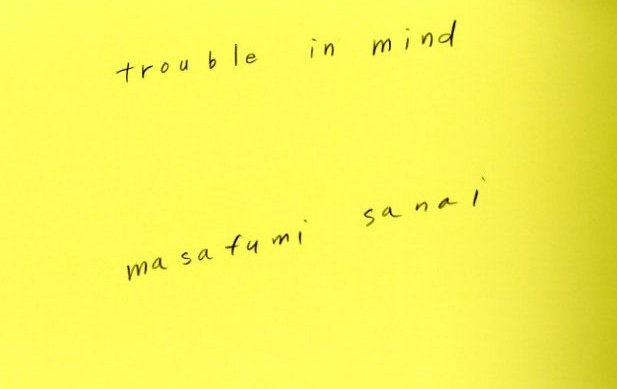 trouble in mind
masafumi sanai